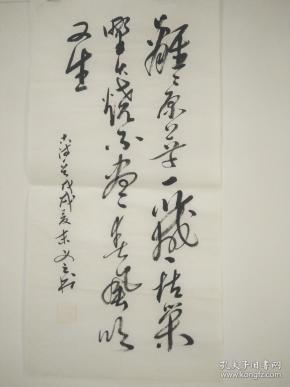 離〻原上草一歲一枯榮
野火燒不盡春風吹
又生
戊戌夏末
孔夫子旧书网